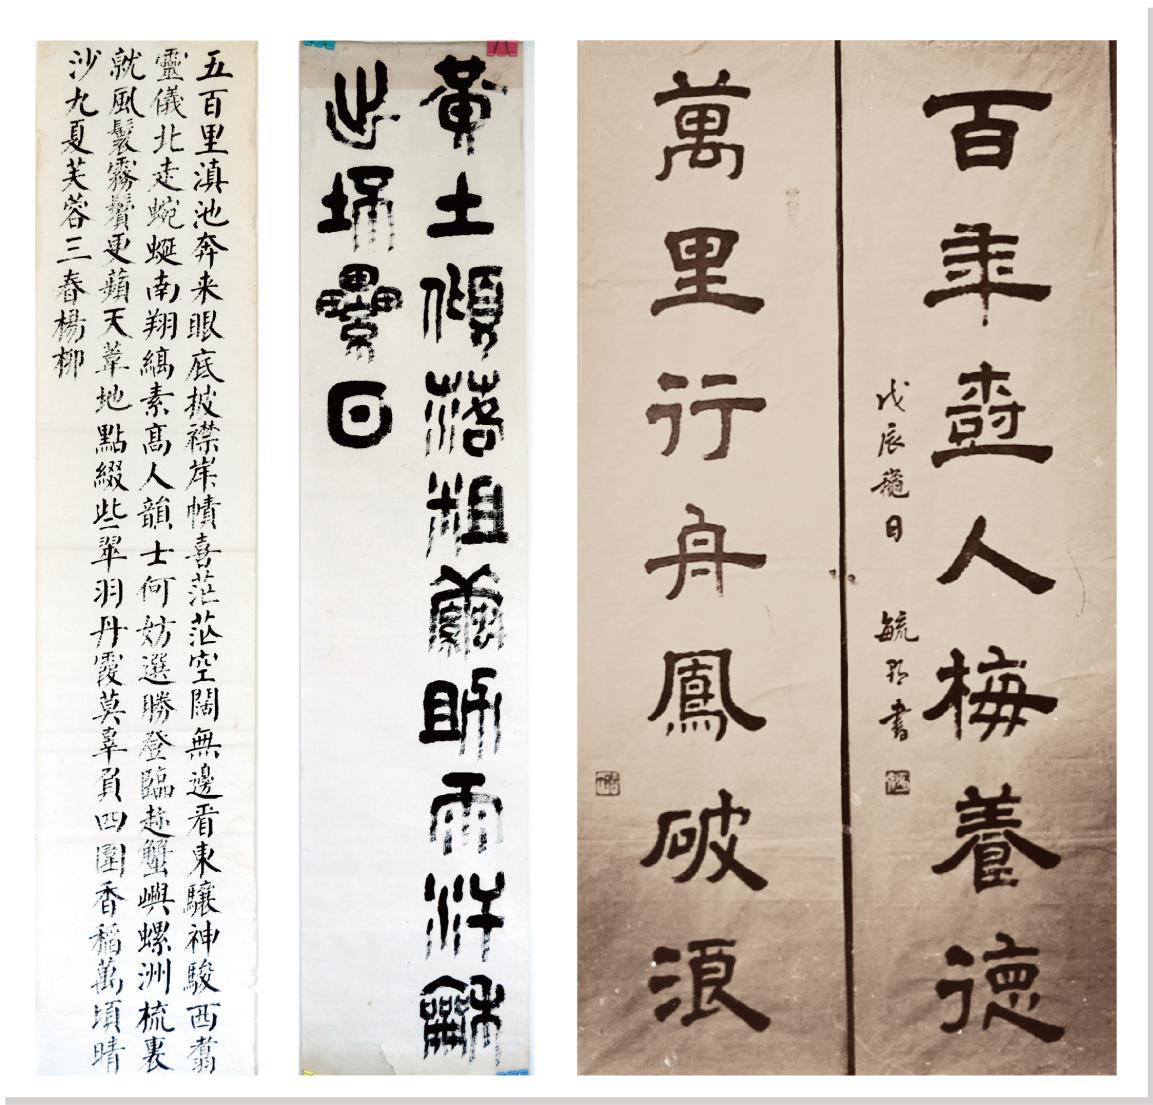 百年樹人梅養德
戊辰龝日
書
萬里行舟鳳破浪
黃土傾落粗繭師而汗龢
日
五百里滇池奔来眼底披襟岸幘喜茫茫空闊無邊看東驤神駿西翥
靈儀北走蜿蜒南翔縞素高人韻士何妨選勝登臨趁蟹嶼螺洲梳裹
就風鬟霧鬢更蘋天葦地點綴些翠羽丹霞莫辜負四圍香稻萬頃晴
沙九夏芙蓉三春楊柳